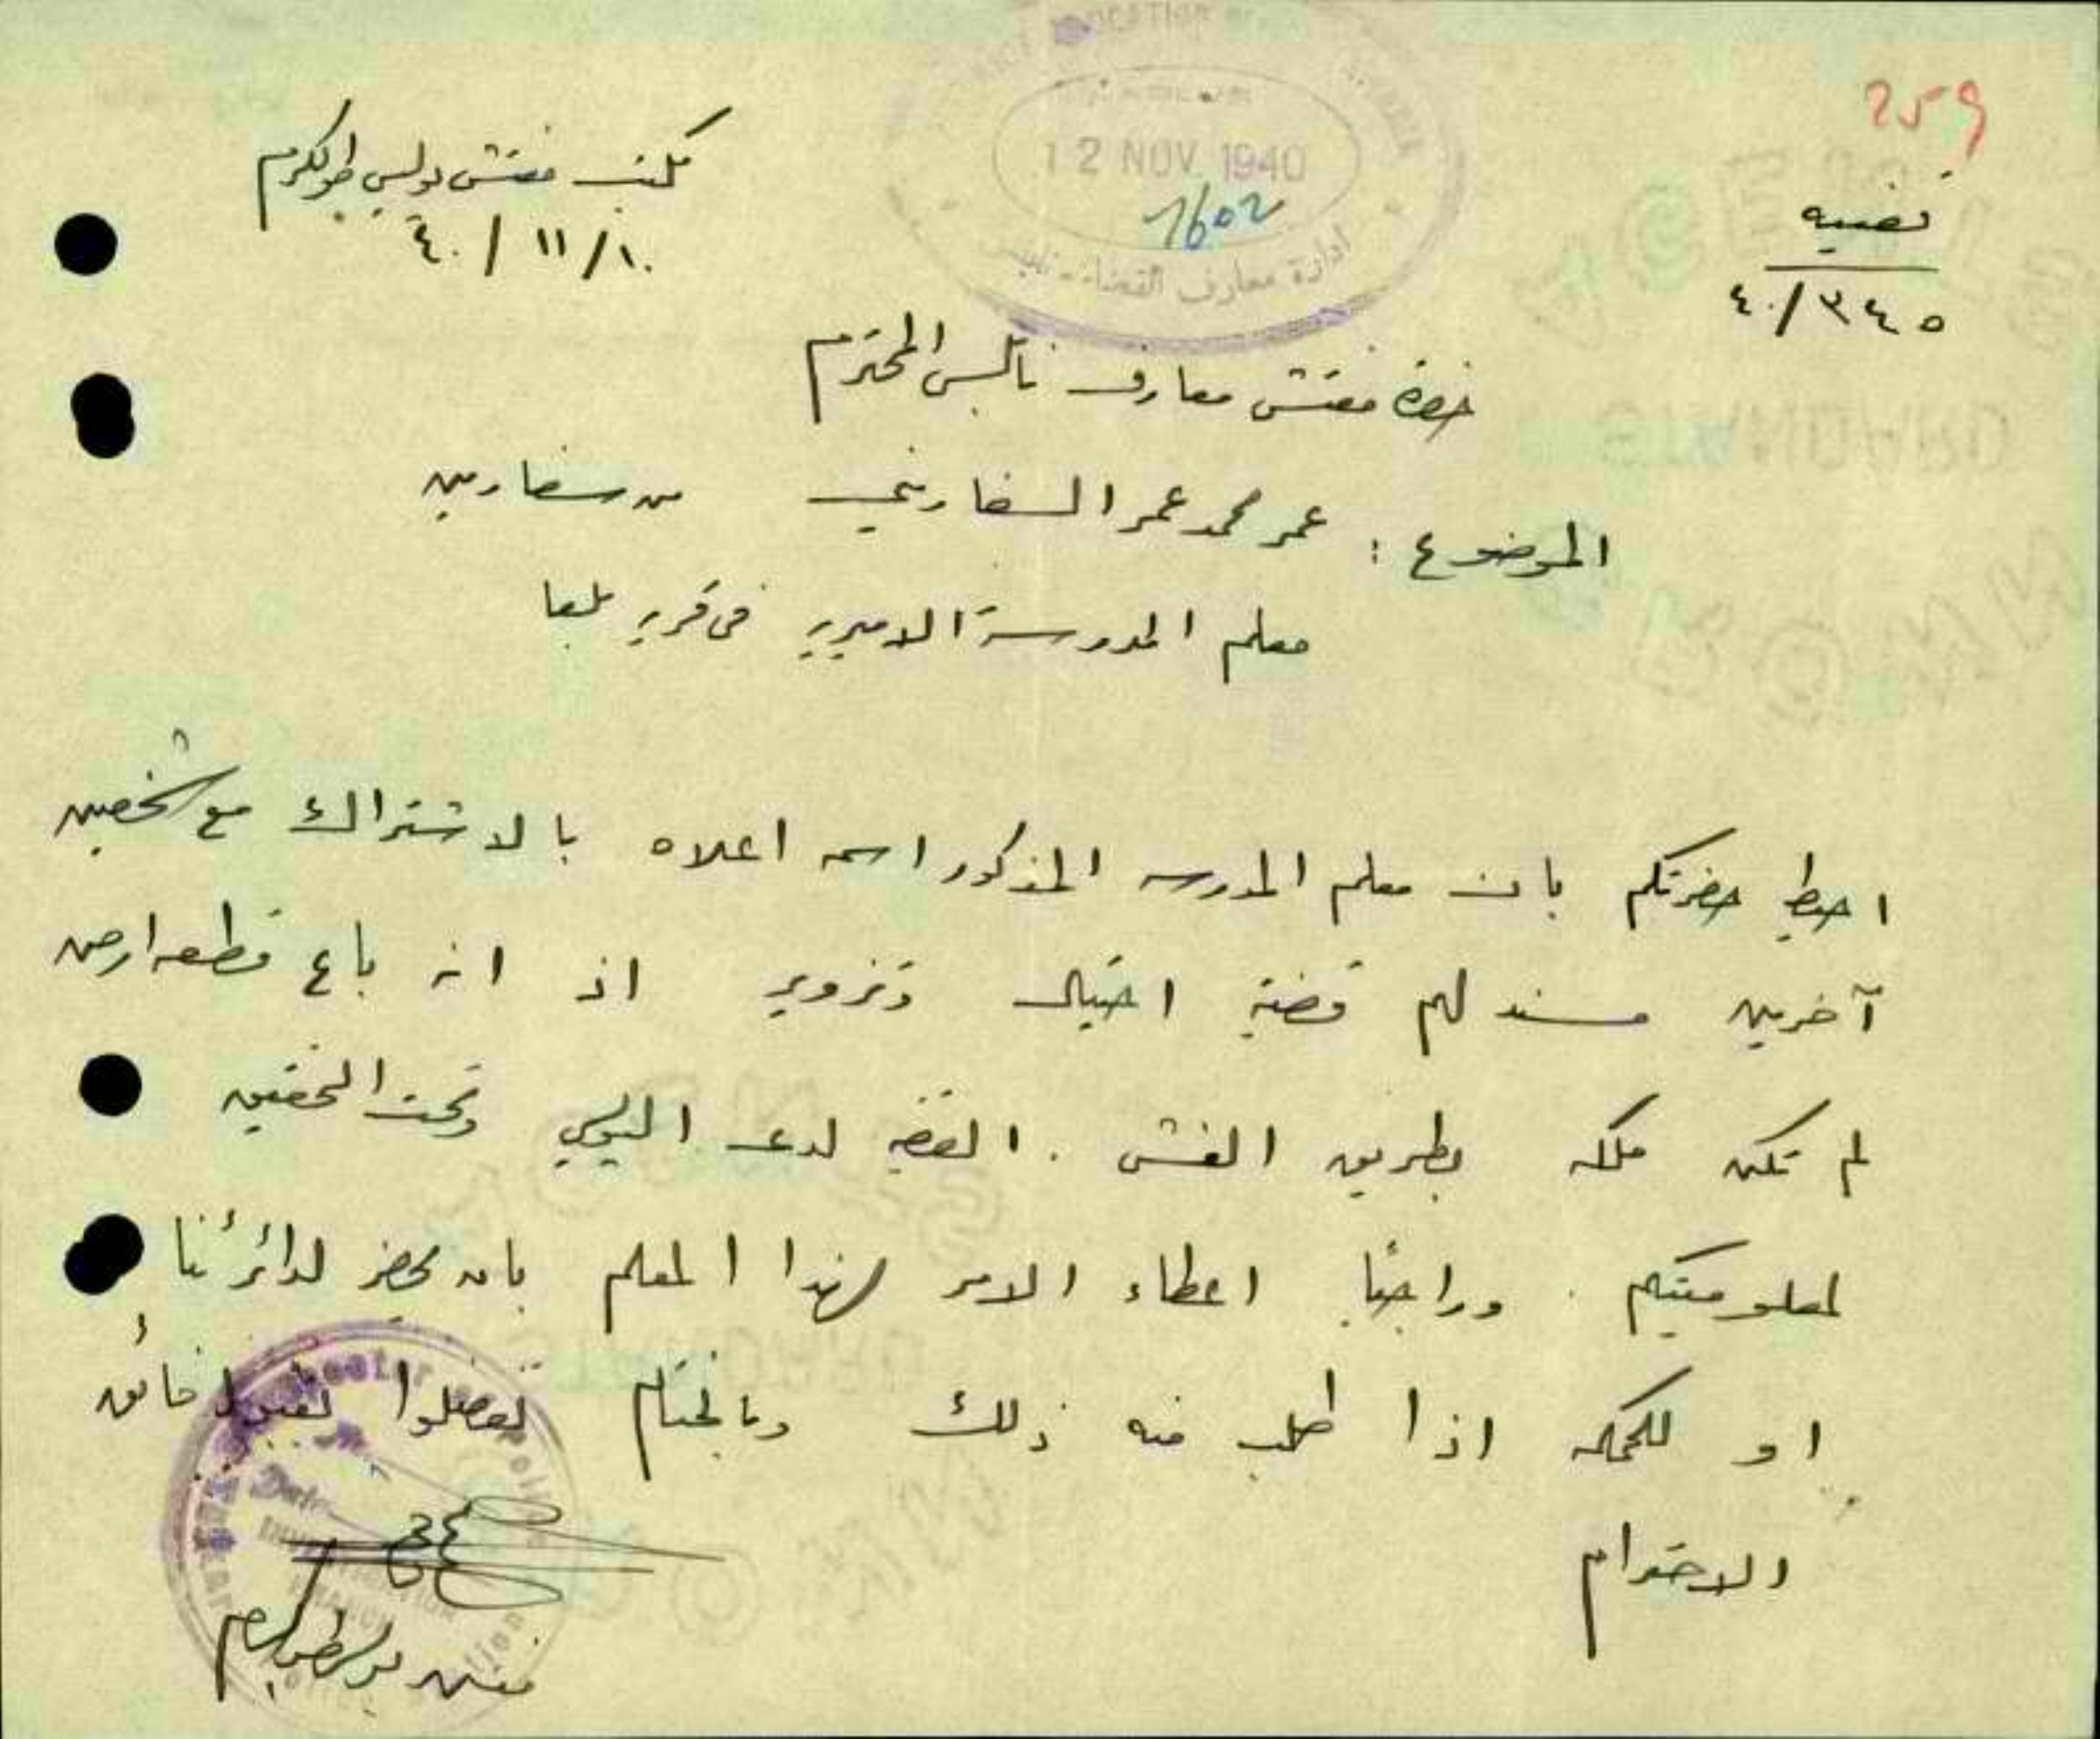 259
مكتب مفتش بوليس طولكرم
١٠/١١/٤٠
12 NOV 1940
1602
ادارة معارف القضاء نابلس
قضيه
٣٤٥/٤٠
حضرة مفتش معارف نابلس المحترم
الموضوع : عمر محمد عمر السفاريني من سفارين
معلم المدرسة الاميرية في قرية بلعا
احيط حضرتكم بان معلم المدرسه المذكور اسمه اعلاه بالاشتراك مع شخصين
آخرين مسند لهم قضية احتيال وتزوير اذ انه باع قطعه ارض
لم تكن ملكه بطريق الغش . القضيه لدى البوليس وتحت التحقيق
لمعلوميتكم . وراجيًا اعطاء الامر لهذا المعلم بان يحضر لدائرتنا
او للمحكمه اذا طلب منه ذلك وبالختام تفضلوا بقبول فائق
الاحترام
مفتش بوليس طولكرم